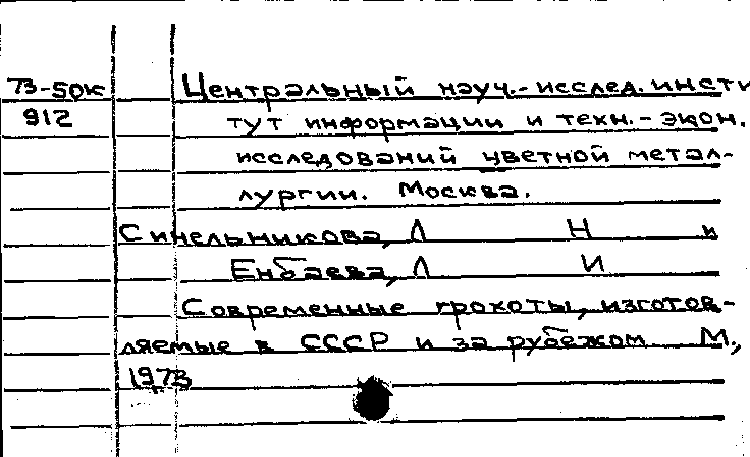 73-50к Центральный науч.-исслед. инсти
912 тут информации и техн.-экон.
исследований цветной метал-
лургии. Москва.
Синельникова, Л Н и
Енбаева, Л И
Современные грохоты, изготов-
ляемые в СССР и за рубежом М.,
1973